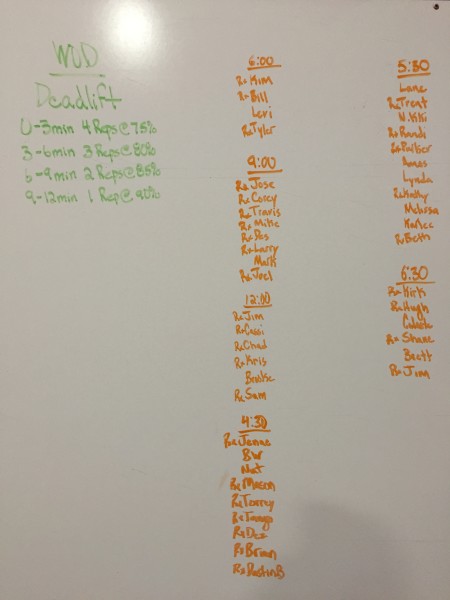 WOD
Deadlift
0-3min 4 Reps@75%
3-6min 3 Reps@80%
6-9min 2 Reps@85%
9-12min 1 Rep@90%
6:00
Rx Kim
Rx Bill
Levi
Rx Tyler
9:00
Rx Jose
Rx Corey
Rx Travis
Rx Mike
Rx
Rx Larry
Mark
Rx Joel
12:00
Rx Jim
Rx Cassi
Rx Chad
Rx Kris
Rx Sam
4:30
Rx Jenna
BW
Nat
Rx Mason
Rx Torry
Rx
Rx Dez
Rx Brian
Rx Dustin B
5:30
Lane
Rx Trent
Nikki
Rx Randi
Rx Parker
Lynda
Rx
Melissa
Karlee
Rx Beth
6:30
Rx Kirk
Rx Hugh
Rx Shane
Brett
Rx Jim